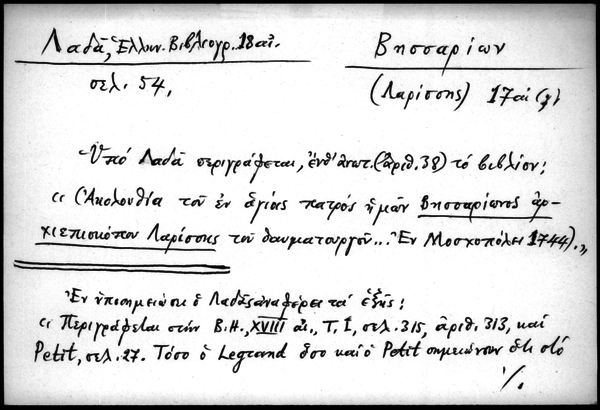 Λαδᾶ, Ἑλλην. Βιβλιογρ. 18 αἰ.
Βησσαρίων
σελ. 54,
(Λαρίσσης) 17 αἰ (;)
Ὑπό Λαδᾶ περιγράφεται, ἐνθ' ἀνωτ. (ἀριθ. 38) τό βιβλίον:
« (Ἀκολουθία τοῦ ἐν ἁγίοις πατρός ἡμῶν Βησσαρίωνος ἀρ-
χιεπισκόπου Λαρίσσης τοῦ θαυματουργοῦ... Ἐν Μοσχοπόλει 1744).»
Ἐν ὑποσημειώσει ὁ Λαδᾶς ἀναφέρει τά ἑξῆς:
« Περιγράφεται στήν B.H., XVIII αἰ., T. I, σελ. 315, ἀριθ. 313, καί
Petit, σελ. 27. Τόσο ὁ Legrand ὅσο καί ὁ Petit σημειώνουν ὅτι στό
./.